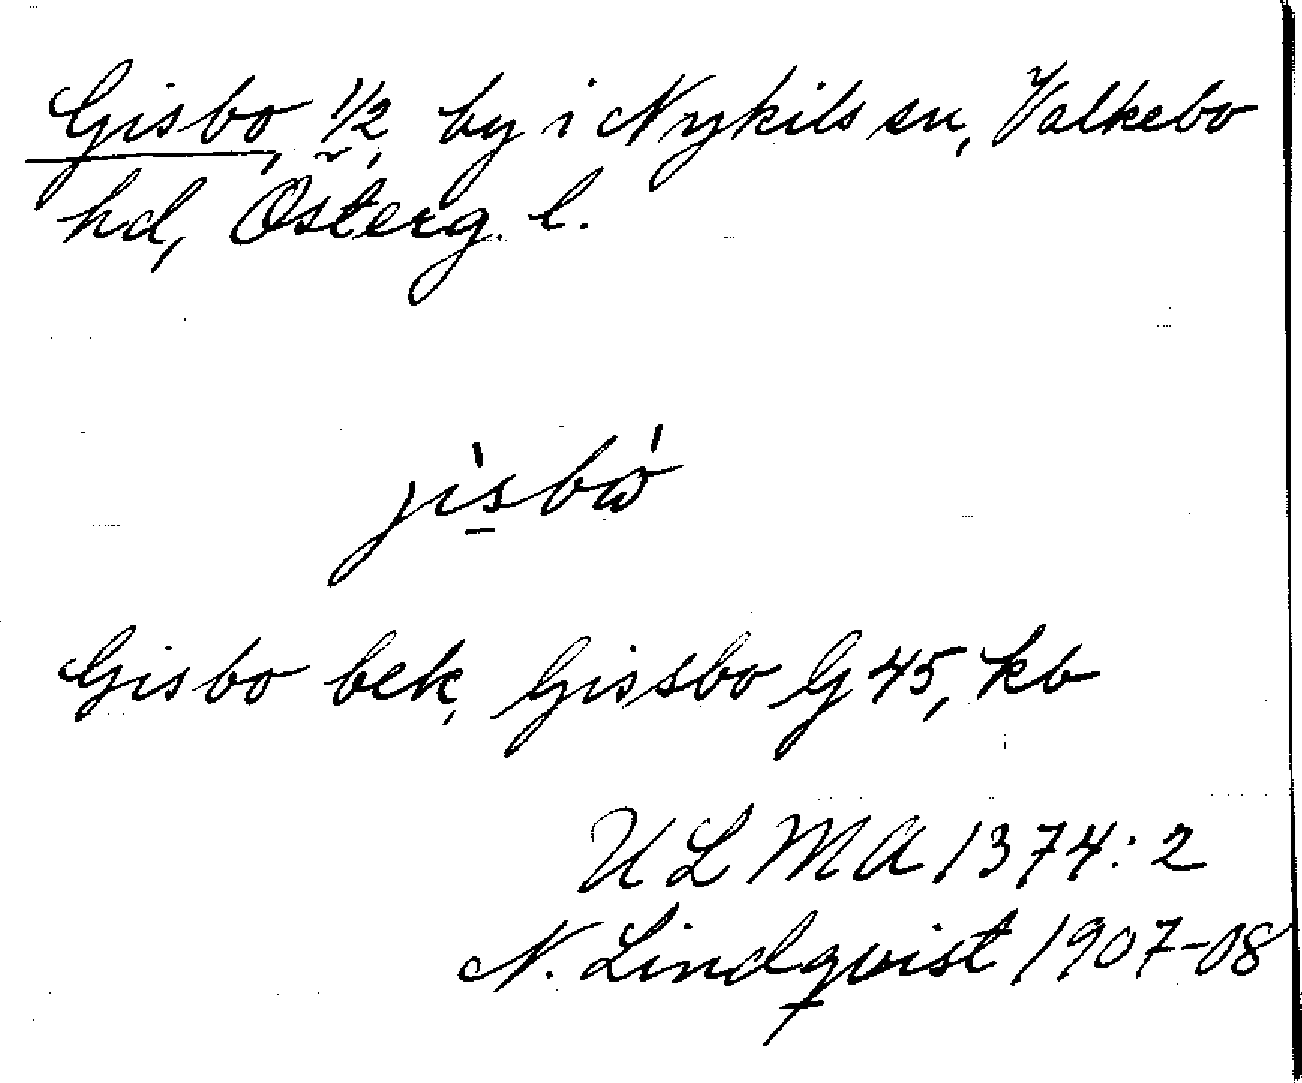 Gisbo, 1/2, by i Nykils sn, Valkebo
hd, Österg. l.
jìsbẃ
Gisbo bek, Gissbo G 45, kb
ULMA 1374:2
N. Lindqvist 1907-08